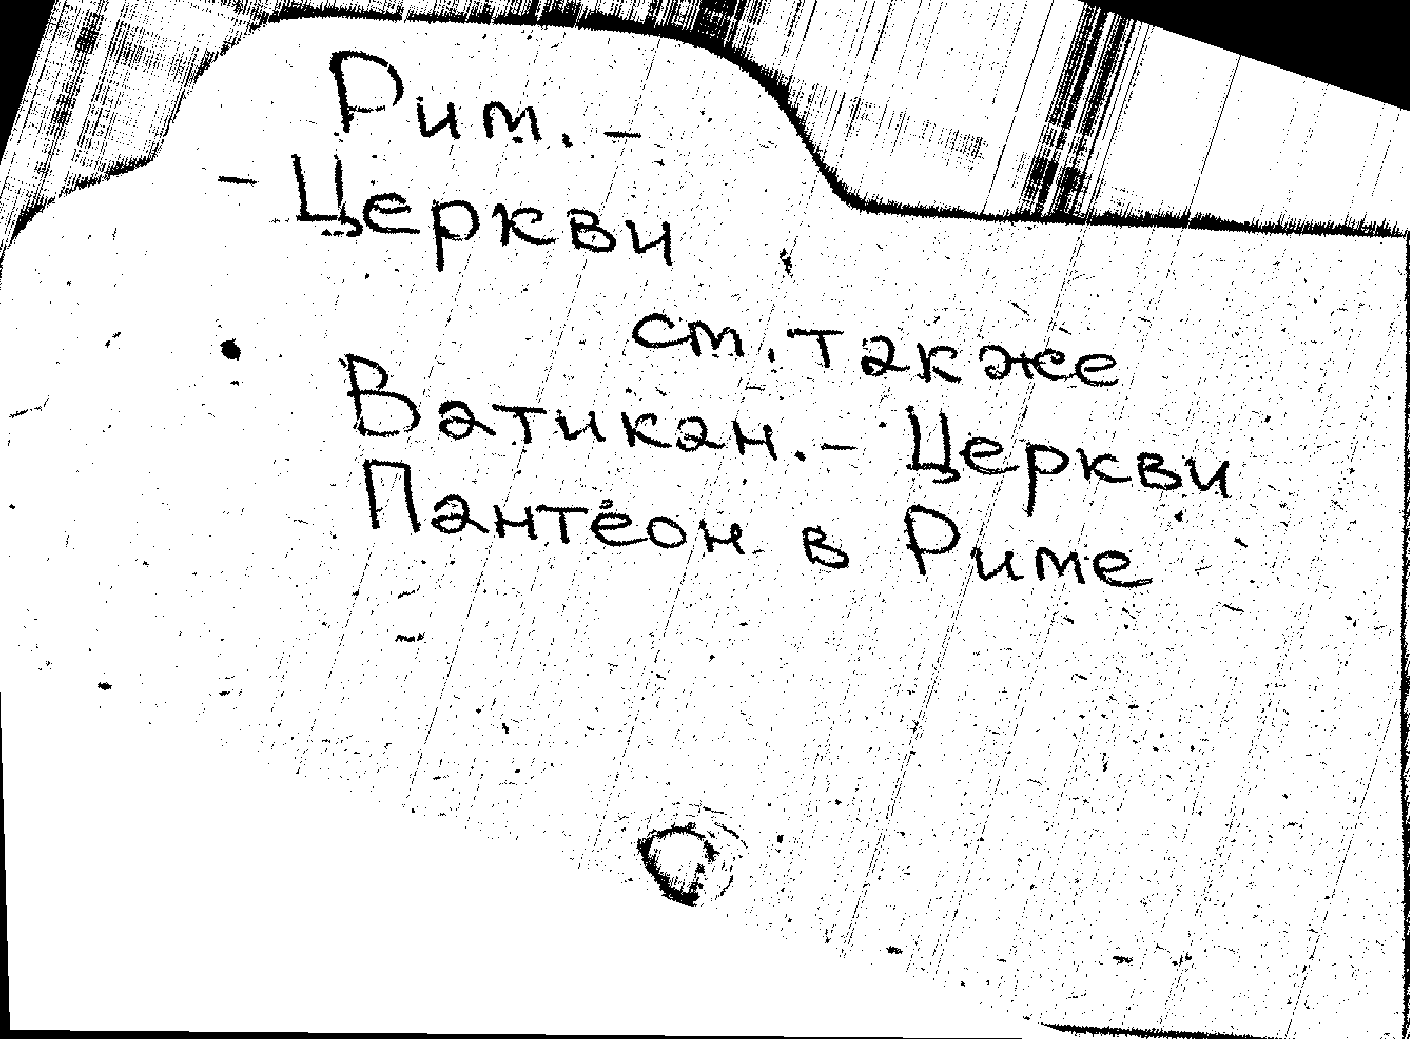 Рим. -
- Церкви
см. также
Ватикан. - Церкви
Пантеон в Риме